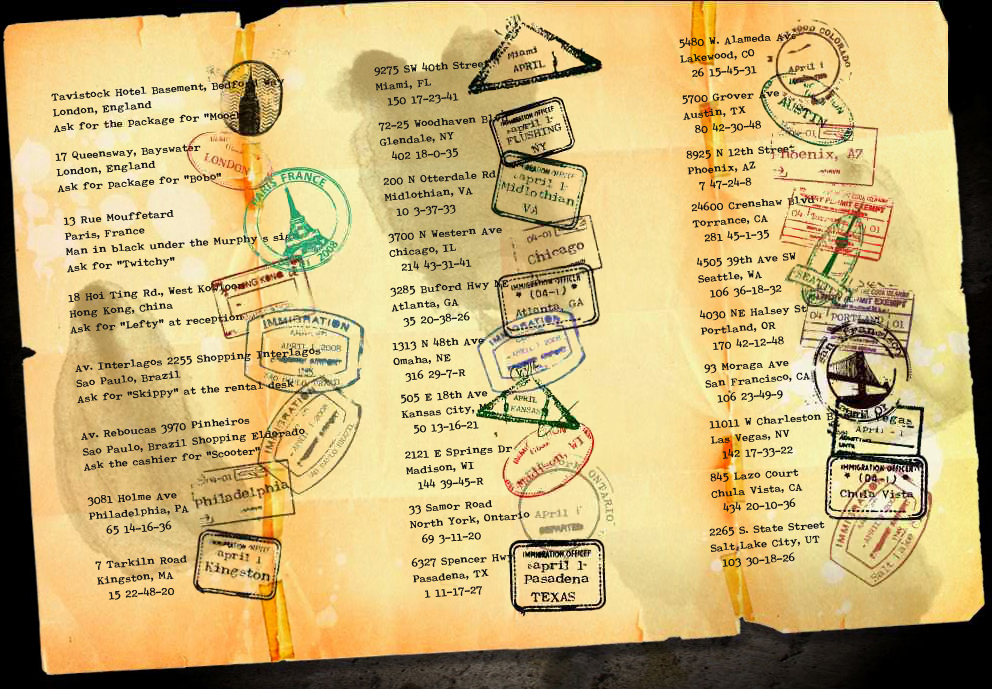 Tavistock Hotel Basement, Bedford Way
London, England
Ask for the package for "Mooch"
17 Queensway, Bayswater
London, England
Ask for package for "Bobo"
LONDON
13 Rue Mouffetard
Paris, France
Man in black under the Murphy's sign
Ask for "Twitchy"
PARIS FRANCE
2008
18 Hoi Ting Rd., West Kowloon
Hong Kong, China
Ask for "Lefty" at reception
HONG KONG
Av. Interlagos 2255 Shopping Interlagos
Sao Paulo, Brazil
Ask for "Skippy" at the rental desk
IMMIGRATION
APRIL 1 2008
SAO PAULO BRAZIL
Av. Reboucas 3970 Pinheiros
Sao Paulo, Brazil Shopping Eldorado
Ask the cashier for "Scooter"
IMMIGRATION
APRIL 1 2008
SAO PAULO BRAZIL
3081 Holme Ave
Philadelphia, PA
65 14-16-36
Philadelphia
7 Tarkiln Road
Kingston, MA
15 22-48-20
IMMIGRATION OFFICER
april 1
Kingston
9275 SW 40th Street
Miami, FL
150 17-23-41
Miami
APRIL
72-25 Woodhaven Blvd
Glendale, NY
402 18-0-35
IMMIGRATION OFFICER
april 1-
FLUSHING
NY
200 N Otterdale Rd
Midlothian, VA
10 3-37-33
IMMIGRATION OFFICER
april 1-
Midlothian
VA
3700 N Western Ave
Chicago, IL
214 43-31-41
04-01
Chicago
3285 Buford Hwy NE
Atlanta, GA
35 20-38-26
IMMIGRATION OFFICER
(04-1)
Atlanta, GA
1313 N 48th Ave
Omaha, NE
316 29-7-R
IMMIGRATION
APRIL 1 2008
505 E 18th Ave
Kansas City, MO
50 13-16-21
APRIL
KANSAS
2121 E Springs Dr
Madison, WI
144 39-45-R
Madison, WI
33 Samor Road
North York, Ontario
69 3-11-20
ONTARIO
April 1
DEPARTED
6327 Spencer Hwy
Pasadena, TX
1 11-17-27
IMMIGRATION OFFICER
april 1-
Pasadena
TEXAS
5480 W. Alameda Ave
Lakewood, CO
26 15-45-31
COLORADO
April 1
5700 Grover Ave
Austin, TX
80 42-30-48
AUSTIN
8925 N 12th Street
Phoenix, AZ
7 47-24-8
Phoenix, AZ
24600 Crenshaw Blvd
Torrance, CA
281 45-1-35
04
01
4505 39th Ave SW
Seattle, WA
106 36-18-32
SEATTLE
4030 NE Halsey St
Portland, OR
170 42-12-48
04 PORTLAND 01
93 Moraga Ave
San Francisco, CA
106 23-49-9
San Francisco
April 01
11011 W Charleston Blvd
Las Vegas, NV
142 17-33-22
Las Vegas
APRIL - 1
845 Lazo Court
Chula Vista, CA
434 20-10-36
IMMIGRATION OFFICER
(04-1)
Chula Vista
2265 S. State Street
Salt Lake City, UT
103 30-18-26
IMMIGRATION
Salt Lake